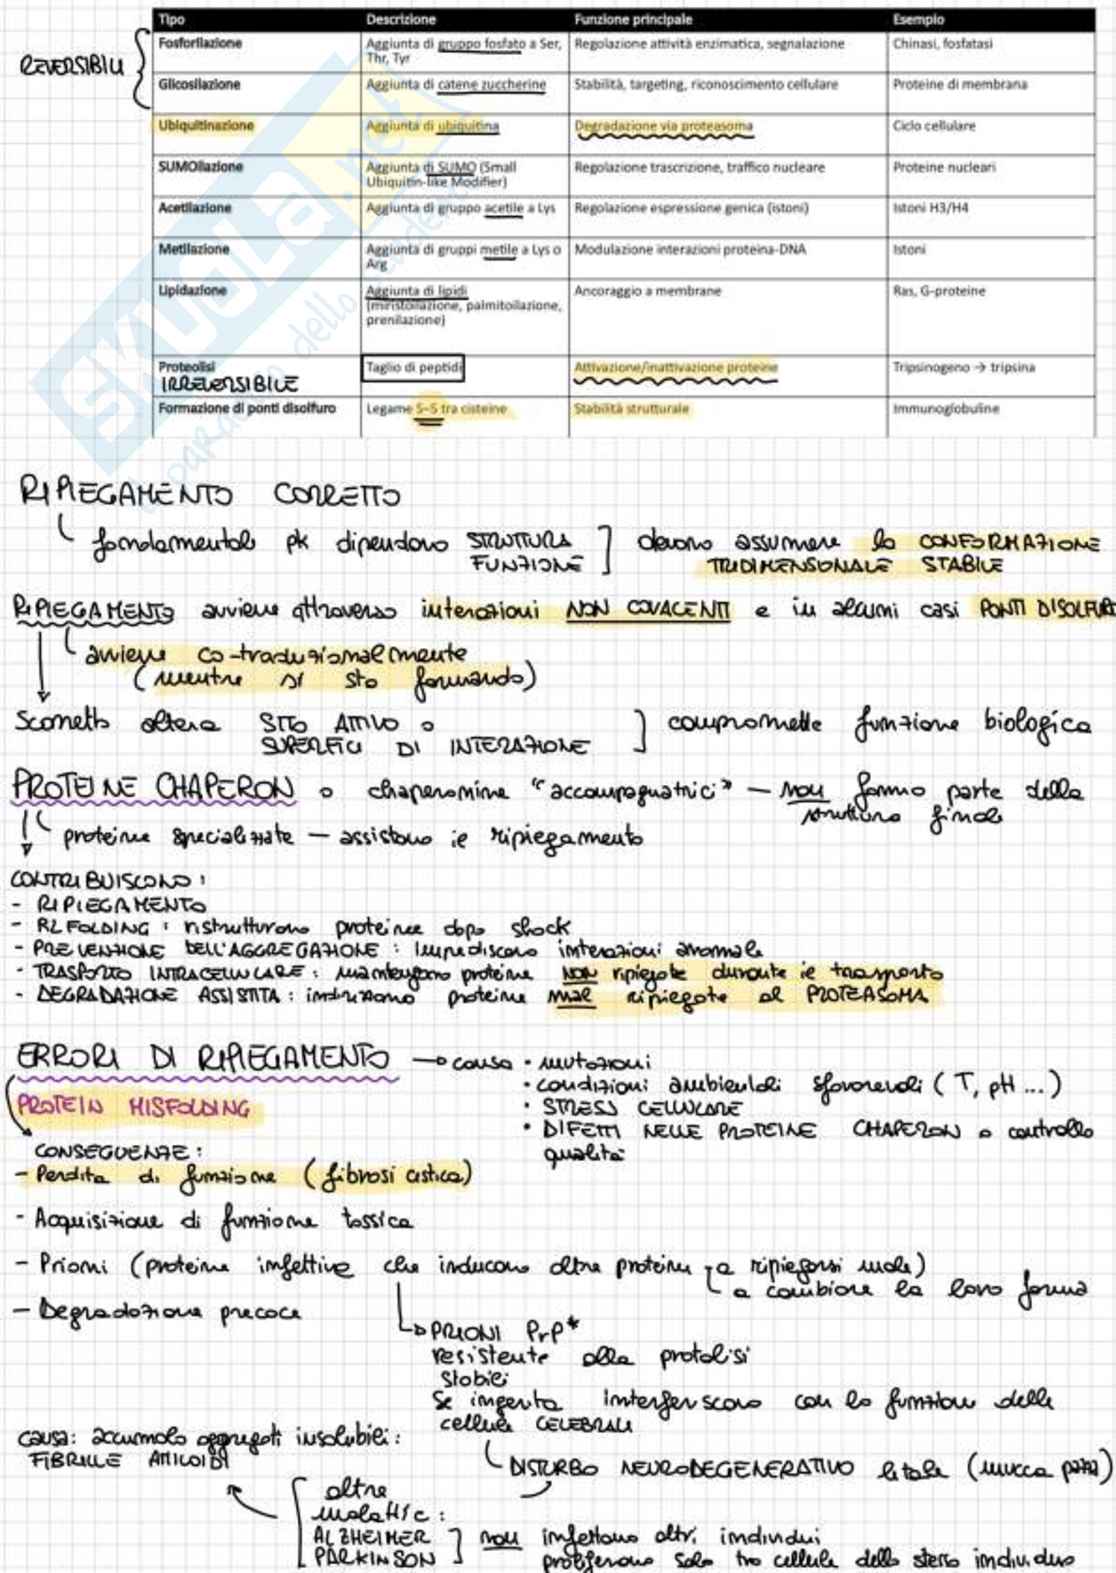 Tipo Descrizione Funzione principale Esempio
REVERSIBILI
Fosforilazione Aggiunta di gruppo fosfato a Ser, Thr, Tyr Regolazione attività enzimatica, segnalazione Chinasi, fosfatasi
Glicosilazione Aggiunta di catene zuccherine Stabilità, targeting, riconoscimento cellulare Proteine di membrana
Ubiquitinazione Aggiunta di ubiquitina Degradazione via proteasoma Ciclo cellulare
SUMOilazione Aggiunta di SUMO (Small Ubiquitin-like Modifier) Regolazione trascrizione, traffico nucleare Proteine nucleari
Acetilazione Aggiunta di gruppo acetile a Lys Regolazione espressione genica (istoni) Istoni H3/H4
Metilazione Aggiunta di gruppi metile a Lys o Arg Modulazione interazioni proteina-DNA Istoni
Lipidazione Aggiunta di lipidi (miristoilazione, palmitoilazione, prenilazione) Ancoraggio a membrane Ras, G-proteine
Proteolisi Taglio di peptidi Attivazione/inattivazione proteine Tripsinogeno → tripsina
IRREVERSIBILE
Formazione di ponti disolfuro Legame S–S tra cisteine Stabilità strutturale Immunoglobuline
SKUOLA.net
RIPIEGAMENTO CORRETTO
fondamentale pk dipendono STRUTTURA FUNZIONE ] devono assumere la CONFORMAZIONE
TRIDIMENSIONALE STABILE
RIPIEGAMENTO avviene attraverso interazioni NON COVALENTI e in alcuni casi PONTI DISOLFURO
avviene co-traduzionalmente
(mentre si sta formando)
Scorretto altera SITO ATTIVO o
SUPERFICI DI INTERAZIONE ] compromette funzione biologica
PROTEINE CHAPERON o chaperonine "accompagnatrici" — non fanno parte della
struttura finale
proteine specializzate — assistono il ripiegamento
CONTRIBUISCONO:
- RIPIEGAMENTO
- REFOLDING: ristrutturano proteine dopo shock
- PREVENZIONE DELL'AGGREGAZIONE: impediscono interazioni anomale
- TRASPORTO INTRACELLULARE: mantengono proteine NON ripiegate durante il trasporto
- DEGRADAZIONE ASSISTITA: indirizzano proteine mal ripiegate al PROTEASOMA
ERRORI DI RIPIEGAMENTO → causa • mutazioni
• condizioni ambientali sfavorevoli (T, pH ...)
PROTEIN MISFOLDING
• STRESS CELLULARE
• DIFETTI NELLE PROTEINE CHAPERON o controllo
qualità
CONSEGUENZE:
- Perdita di funzione (fibrosi cistica)
- Acquisizione di funzione tossica
- Prioni (proteine infettive che inducono altre proteine a ripiegarsi male)
a cambiare la loro forma
- Degradazione precoce
PRIONI PrP*
resistente alla protolisi
stabili
se ingerita interferiscono con la funzione delle
cellule CELEBRALI
causa: accumulo aggregati insolubili:
FIBRILLE AMILOIDI
DISTURBO NEURODEGENERATIVO letale (mucca pazza)
altre
malattie:
ALZHEIMER
PARKINSON ] non infettano altri individui
proliferano solo tra cellule dello stesso individuo